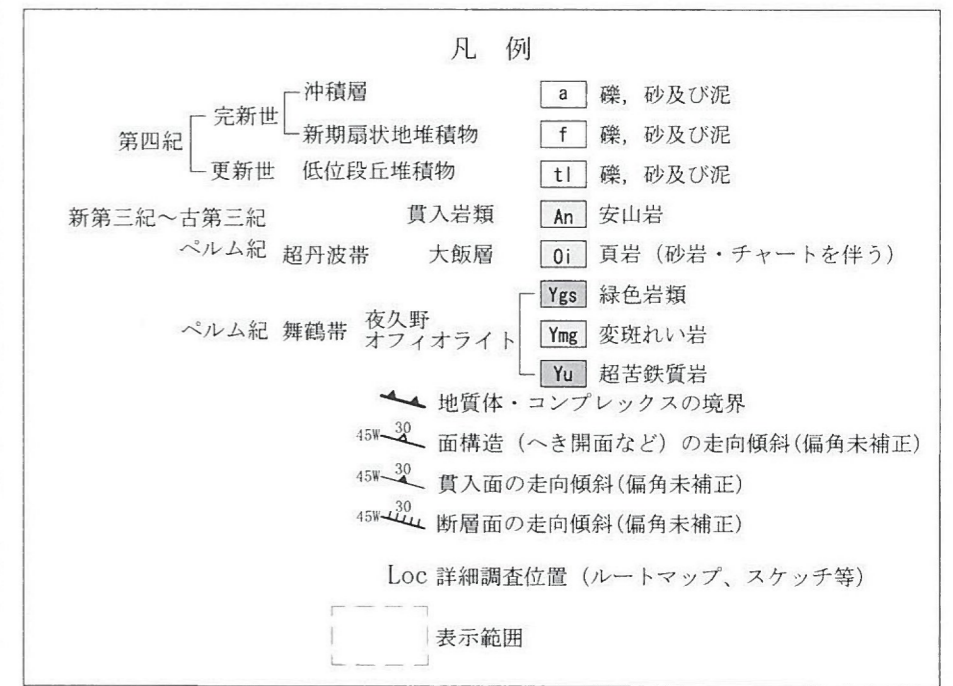 凡 例
沖積層 a 礫，砂及び泥
完新世
第四紀 新期扇状地堆積物 f 礫，砂及び泥
更新世 低位段丘堆積物 tl 礫，砂及び泥
新第三紀～古第三紀 貫入岩類 An 安山岩
ペルム紀 超丹波帯 大飯層 Oi 頁岩（砂岩・チャートを伴う）
Ygs 緑色岩類
ペルム紀 舞鶴帯 夜久野オフィオライト Ymg 変斑れい岩
Yu 超苦鉄質岩
地質体・コンプレックスの境界
45W 30 面構造（へき開面など）の走向傾斜(偏角未補正)
45W 30 貫入面の走向傾斜(偏角未補正)
45W 30 断層面の走向傾斜(偏角未補正)
Loc 詳細調査位置（ルートマップ、スケッチ等）
表示範囲